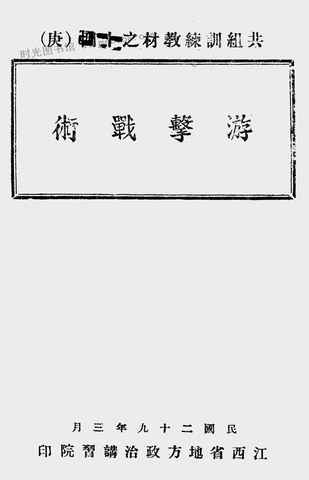 共組訓練教材之(庚)
时光图书馆
游擊戰術
民國二十九年三月
江西省地方政治講習院印